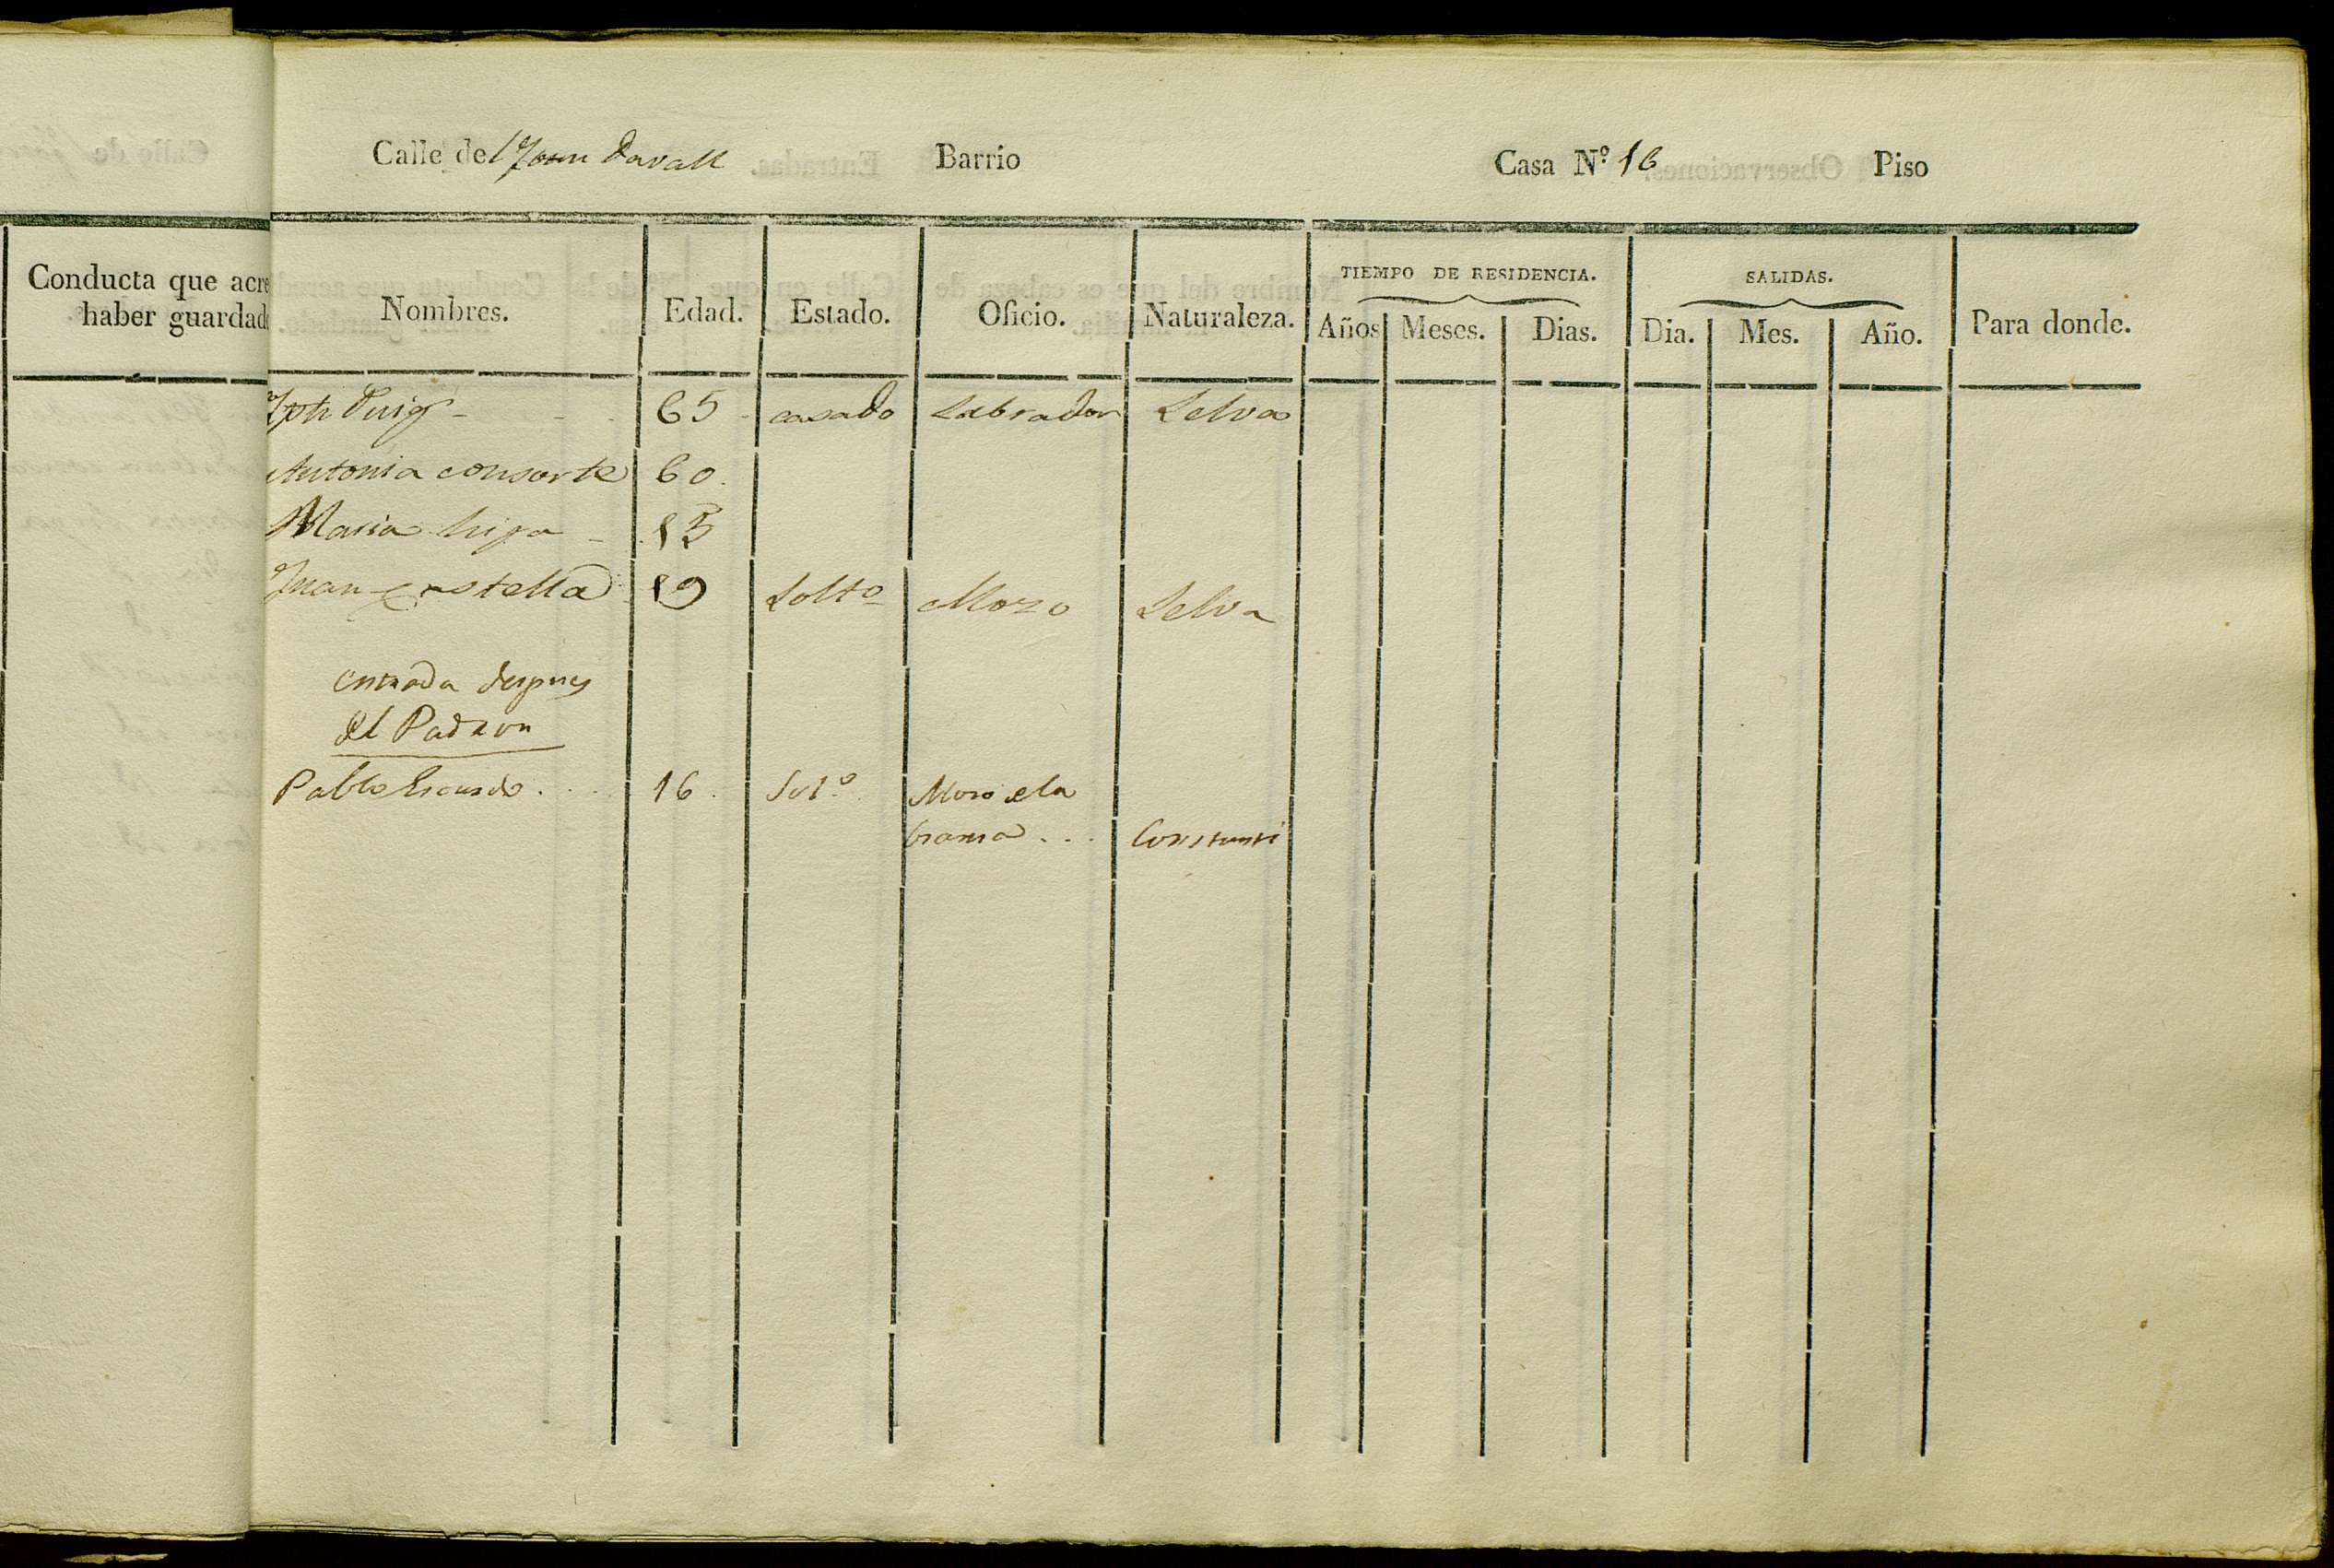 Conducta que acre
haber guardad
Calle de Barrio Casa Nº 16 Piso
Nombres. Edad. Estado. Oficio. Naturaleza. TIEMPO DE RESIDENCIA. Años Meses. Dias. SALIDAS. Dia. Mes. Año. Para donde.
Jph Puig 65 casado Labrador Selva
Antonia consorte 60.
Maria hija
Juan 19 Solto Mozo Selva
entrada despues
del Padron
Pablo 16. Solo. Moso de la
Constanti